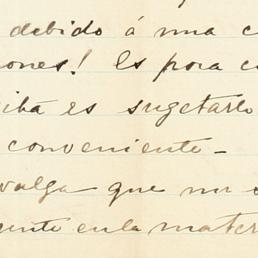 debido á una c
ones! Es pora c
iba es sugetarlo
conveniente_
valga que mi
ente en la mater